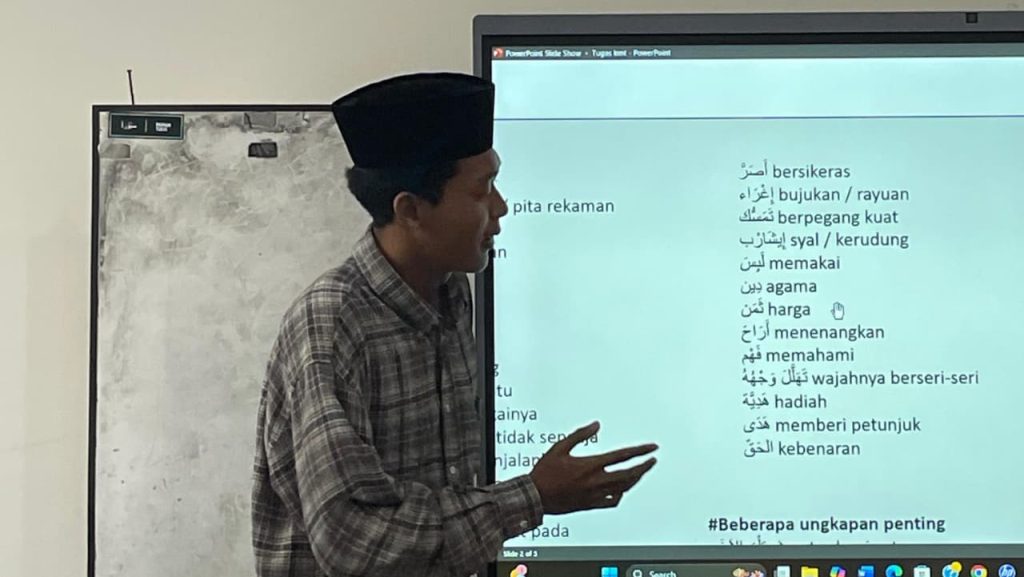 PowerPoint Slide Show - Tugas Imt - PowerPoint
pita rekaman
أَصَرَّ bersikeras
إِغْرَاء bujukan / rayuan
تَمَسُّك berpegang kuat
إِيشَارْب syal / kerudung
لَبِسَ memakai
دِين agama
ثَمَن harga
أَرَاحَ menenangkan
فَهْم memahami
تَهَلَّلَ وَجْهُهُ wajahnya berseri-seri
هَدِيَّة hadiah
هَدَى memberi petunjuk
الحَقّ kebenaran
tidak
pada
#Beberapa ungkapan penting
Slide 2 of 3
Search